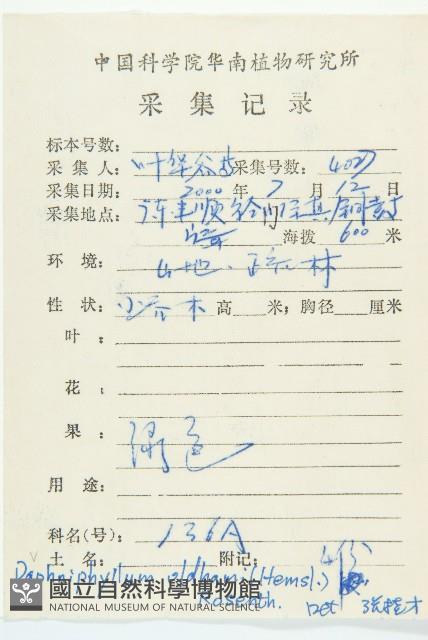 中国科学院华南植物研究所
采集记录
标本号数:
采集人: 叶华谷等 采集号数: 4027
采集日期: 2000 年 7 月 12 日
采集地点: 广东丰顺 铜鼓
海拨 600 米
环境: 山地、疏林
性状: 小乔木 高 米; 胸径 厘米
叶:
花:
果: 绿色
用途:
科名(号): 136A
土名: 附记: 4份
Daphniphyllum oldhami (Hemsl.)
Rosenth. Det
國立自然科學博物館
NATIONAL MUSEUM OF NATURAL SCIENCE